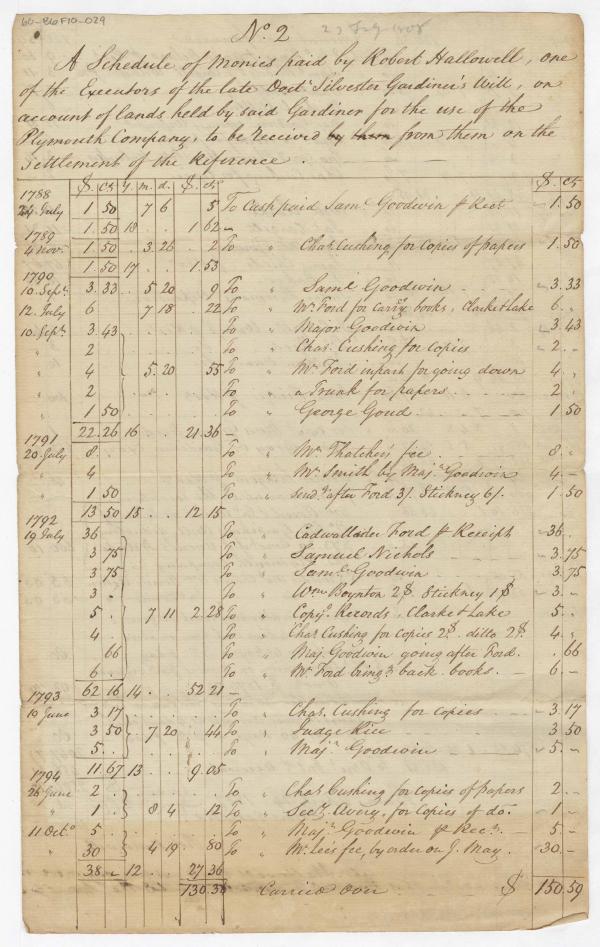 60-86F10-029
No. 2
A Schedule of Monies paid by Robert Hallowell, one
of the Executors of the late Doctr. Silvester Gardiner's Will, on
account of lands held by said Gardiner for the use of the
Plymouth Company, to be received by them from them on the
Settlement of the Reference.
$. Cts y. m. d. $. cts $. cts
1788
24 July 1 50 7 6 5 To Cash paid Saml. Goodwin & Rect 1. 50
1789 1. 50 18 1 62
4 Novr. 1. 50 3. 26 2 To " Chas. Cushing for Copies of papers 1. 50
1790 1. 50 17 1. 53
10. Septr. 3. 33 5 20 9 To " Saml Goodwin 3. 33
12. July 6 7 18 22 To " Mr. Ford for carrg. books, Clarke & Lake 6 "
10. Septr. 3. 43 To " Major Goodwin 3. 43
" 2 To " Chas. Cushing for Copies 2
" 4 5. 20 55 To " Mr. Ford in part for going down 4
" 2 To " a Trunk for papers 2
" 1 50 To " George Goud 1 50
1791 22. 26 16 21. 36
20 July 8 To " Mr. Thatcher's fee 8
" 4 To " Mr. Smith by Majr. Goodwin 4. -
" 1 50 To " Sendg. after Ford 3/. Stickney 6/. 1. 50
1792 13 50 15 12 15
19 July 36 To " Cadwallader Ford & Receipt 36.
3 75 To " Samuel Nichols 3. 75
3 75 To " Saml. Goodwin 3. 75
3 To " Wm. Boynton 2$. Stickney 1$ 3. -
5 7 11 2. 28 To " Copyg. Records, Clarke & Lake 5.
4 To " Chas Cushing for Copies 2$. ditto 2$. 4
66 To " Maj. Goodwin going after Ford. . 66
6 To " Mr. Ford bringg. back books. 6 -
1793 62 16 14 52 21
19 June 3 17 To " Chas. Cushing for Copies 3 17
3 50 7 20 44 To " Judge Rice 3 50
5 To " Majr. Goodwin 5. -
1794 11. 67 13 9. 05
26 June 2 To " Chas Cushing for Copies of papers 2 -
" 1 8 4 12 To " Secy. Avery, for Copies of do. 1 -
11 Octo 5 To " Majr. Goodwin & Rect. 5 -
30 4 19 80 To " Mr. Lee's fee, by order on J. May. 30. -
38 12 27 36
130. 38 Carried Over $ 150. 59